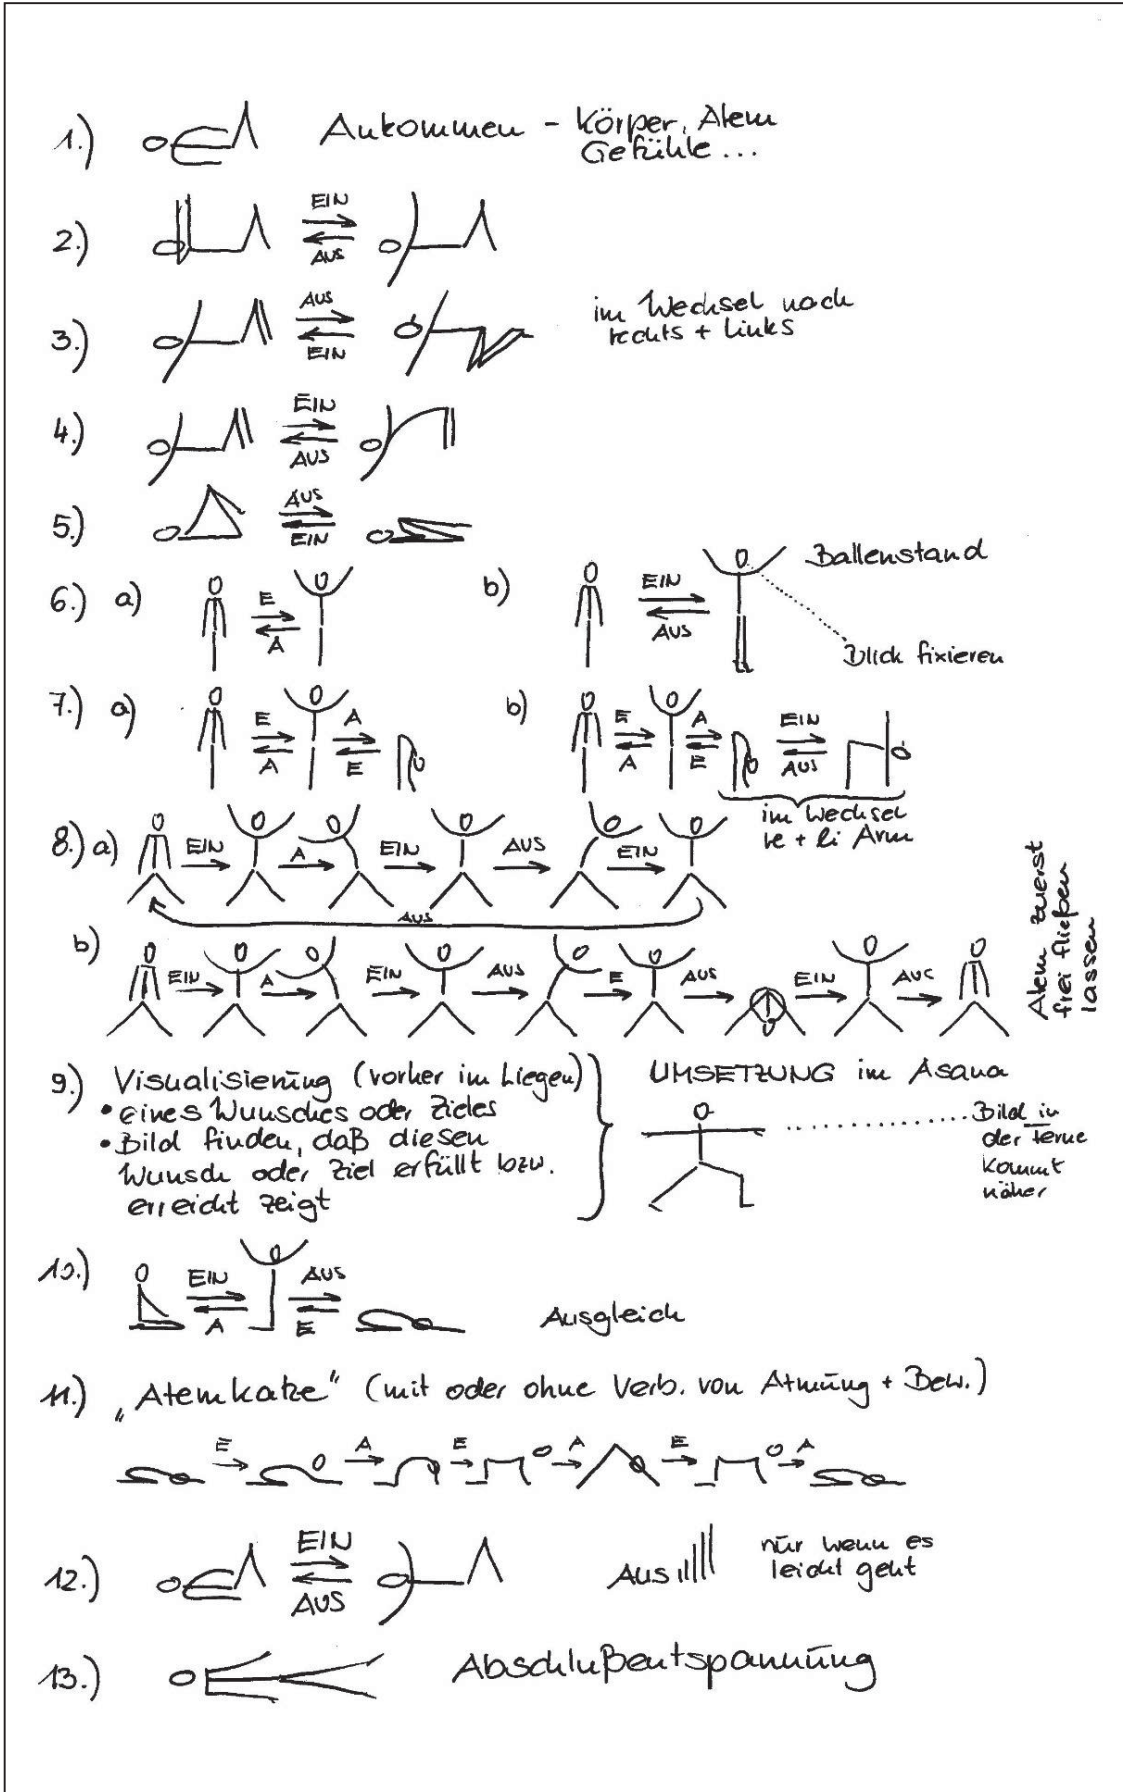 1.) Ankommen - Körper, Atem
Gefühle...
2.) EIN
AUS
3.) AUS
EIN
im Wechsel nach
rechts + links
4.) EIN
AUS
5.) AUS
EIN
6.) a) E
A
b) EIN
AUS
Ballenstand
Blick fixieren
7.) a) E A
A E
b) E A EIN
A E AUS
im Wechsel
re + li Arm
8.) a) EIN A EIN AUS EIN
AUS
b) EIN A EIN AUS E AUS EIN AUS
Atem zuerst
frei fließen
lassen
9.) Visualisierung (vorher im Liegen)
• eines Wunsches oder Zieles
• Bild finden, daß diesen
Wunsch oder Ziel erfüllt bzw.
erreicht zeigt
UMSETZUNG im Asana
Bild in
der Ferne
kommt
näher
10.) EIN AUS
A E
Ausgleich
11.) „Atemkatze“ (mit oder ohne Verb. von Atmung + Bew.)
E A E A E A
12.) EIN
AUS
AUS
nur wenn es
leicht geht
13.) Abschlußentspannung